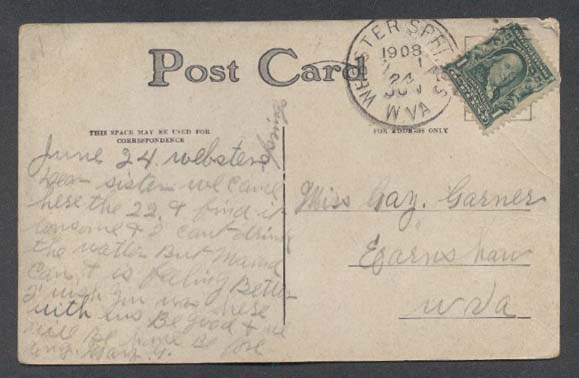 Post Card
WEBSTER SPRINGS
1908
24
JUN
W VA
THIS SPACE MAY BE USED FOR
CORRESPONDENCE
FOR ADDRESS ONLY
June 24 websters
springs
Dear sister we came
here the 22. & find it
lonsome & I cant drink
the watter But Mamma
can & is feeling Better
I wish you was here
with us Be good & we
will Be home Be fore
long. Mary G.
Miss Gay. Garner
Earnshaw
W Va